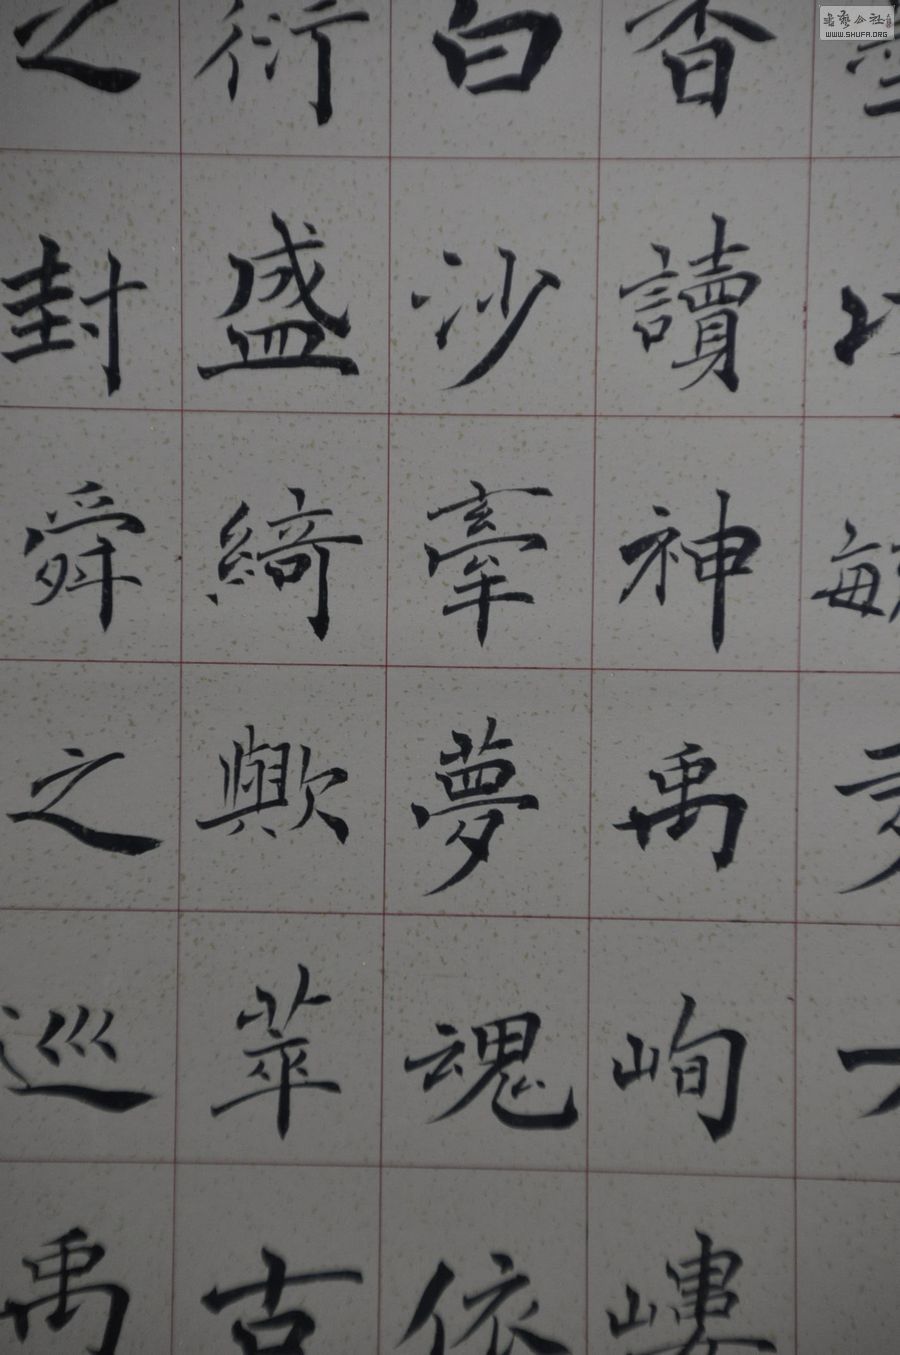 杳讀神禹岣嶁
白沙牽夢魂依
衍盛綺歟萃古
之封舜之巡禹
WWW.SHUFA.ORG